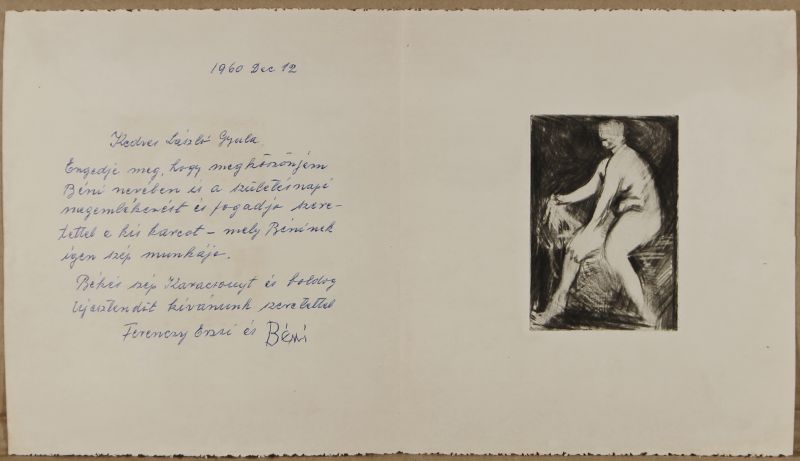 1960 Dec 12
Kedves László Gyula
Engedje meg, hogy megköszönjem
Béni nevében is a születésnapi
megemlékezést és fogadja szere-
tettel e kis karcot – mely Béninek
igen szép munkája.
Békés szép Karácsonyt és boldog
Újesztendőt kívánunk szeretettel
Ferenczy Erzsi és Béni